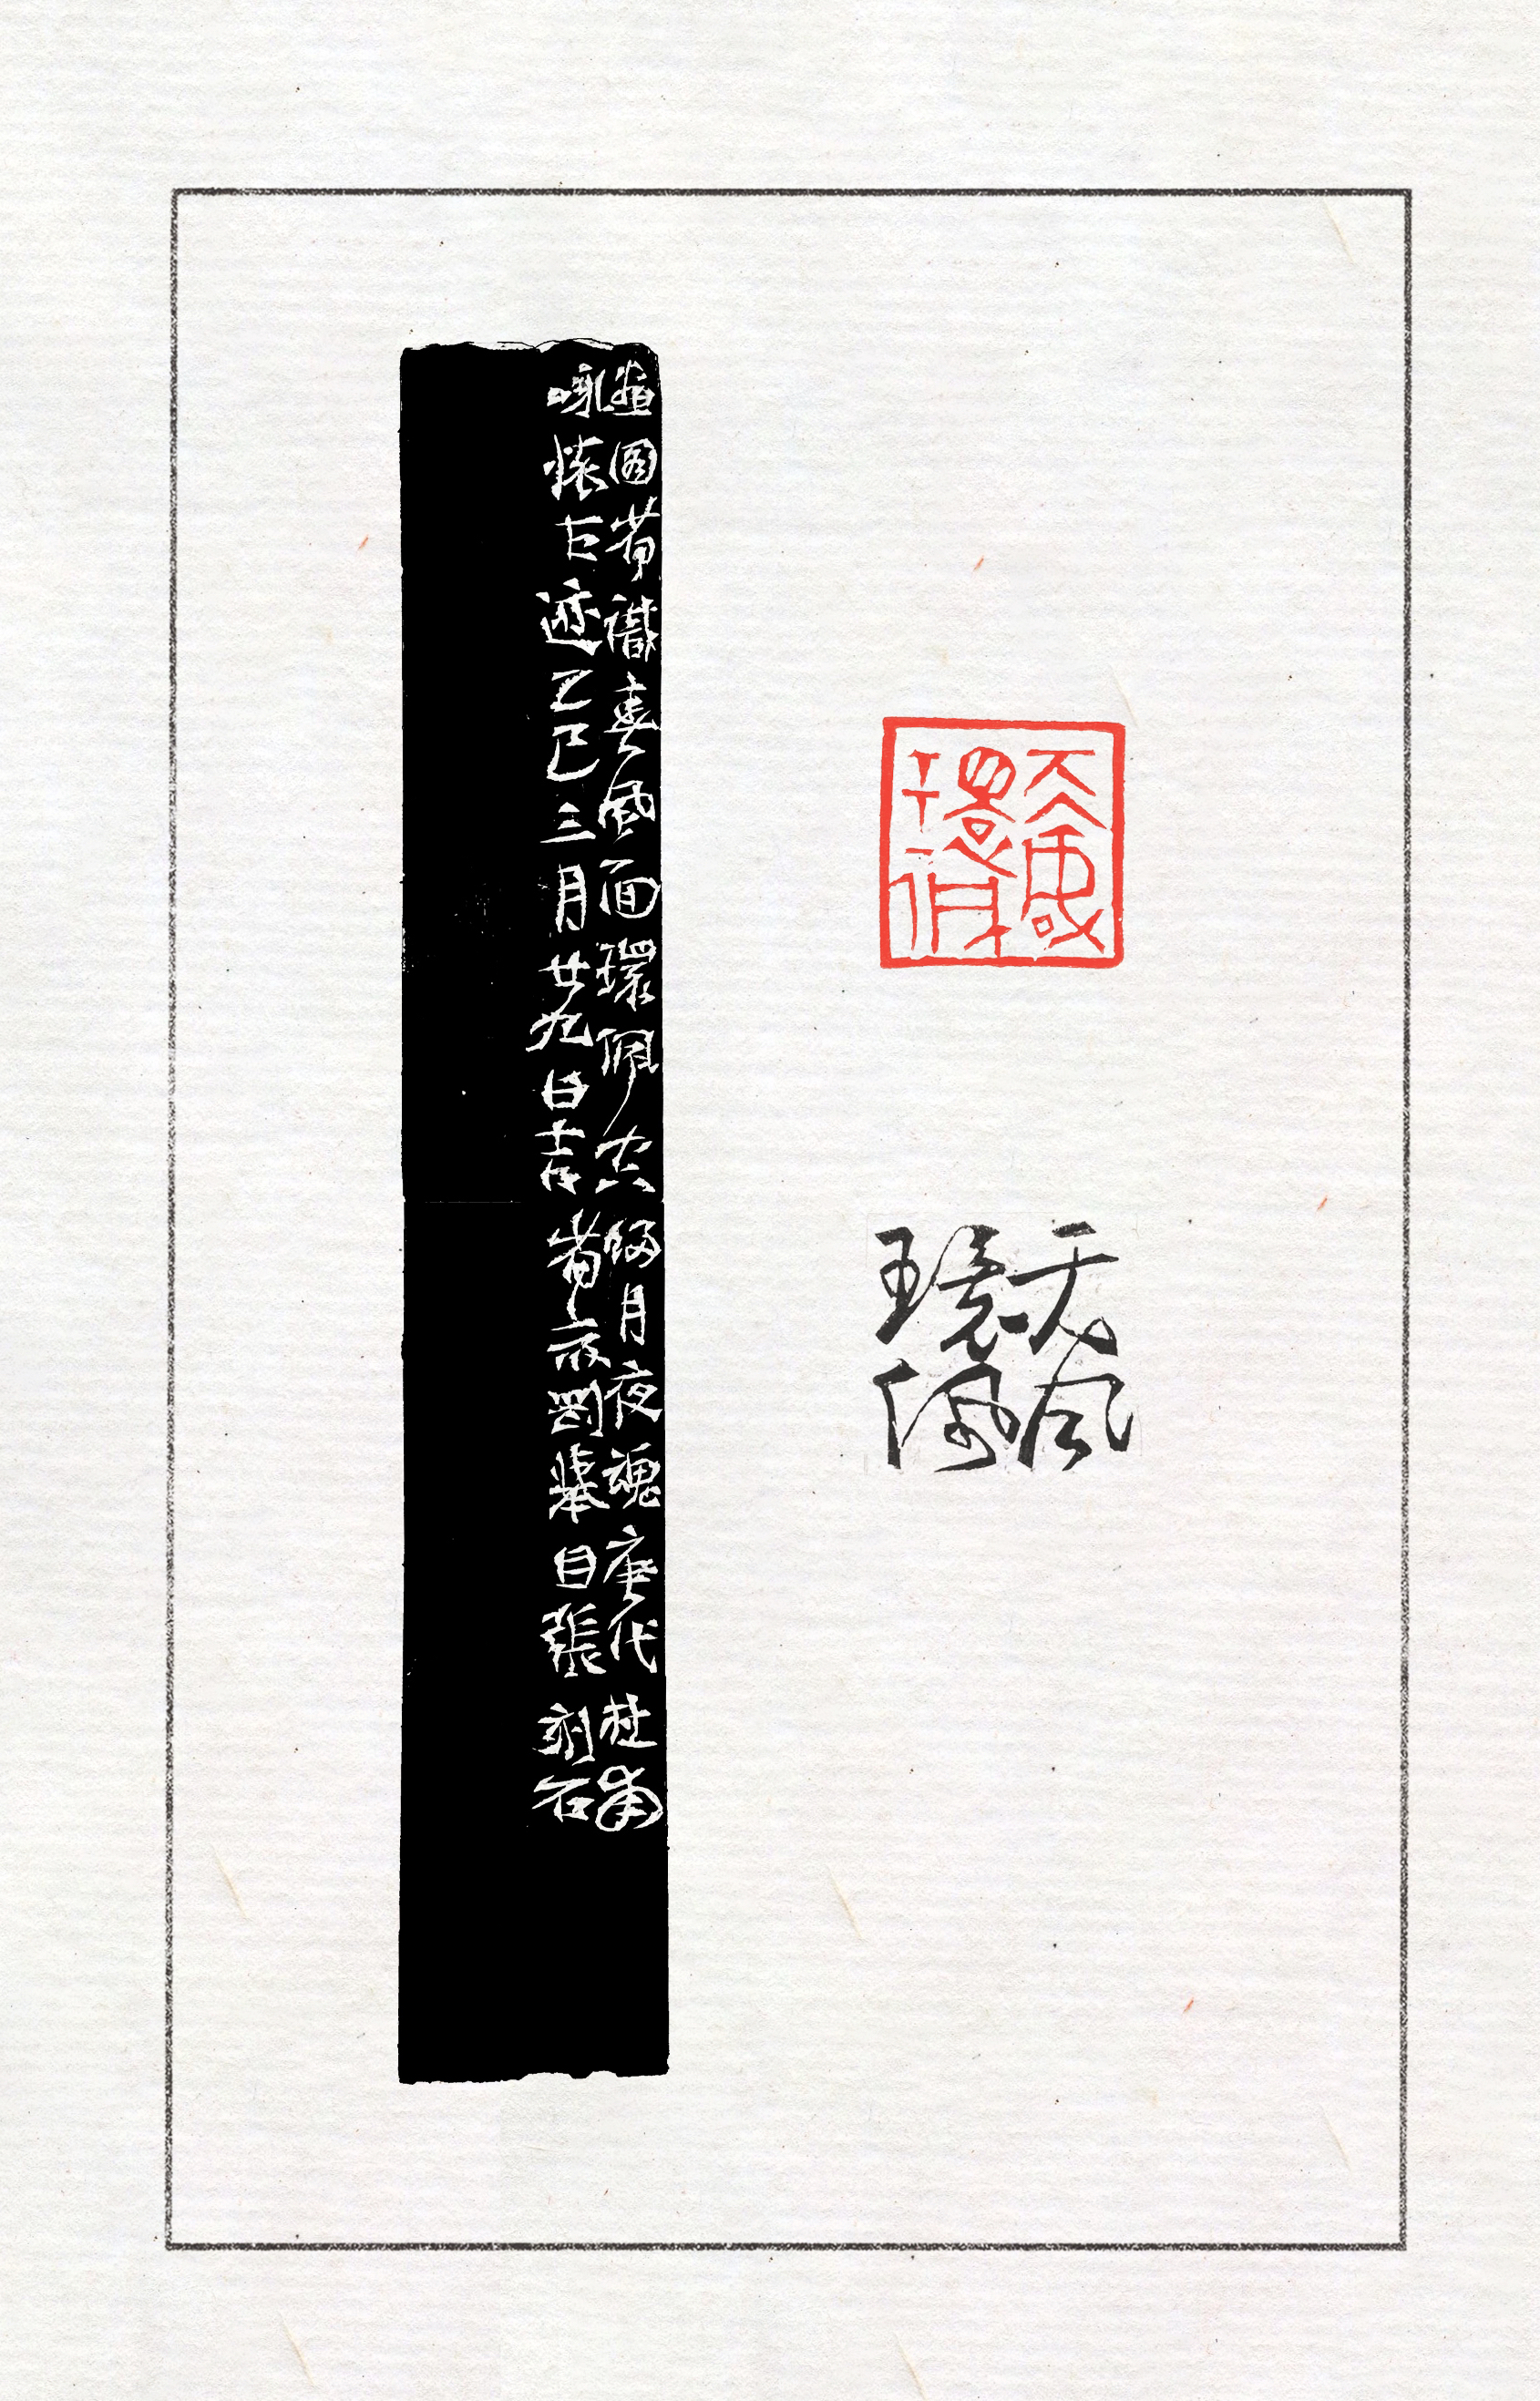 天風
環佩
天風
環佩
畫圖省識春風面環佩空歸月夜魂唐代杜甫
詠懷古迹乙巳三月廿九日吉省齋罡犖目張刻石